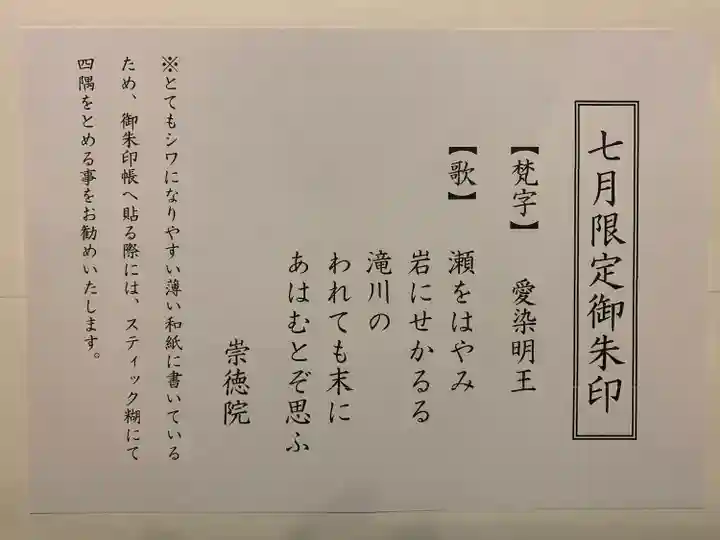 七月限定御朱印
【梵字】 愛染明王
【歌】 瀬をはやみ
岩にせかるる
滝川の
われても末に
あはむとぞ思ふ
崇徳院
※とてもシワになりやすい薄い和紙に書いている
ため、御朱印帳へ貼る際には、スティック糊にて
四隅をとめる事をお勧めいたします。